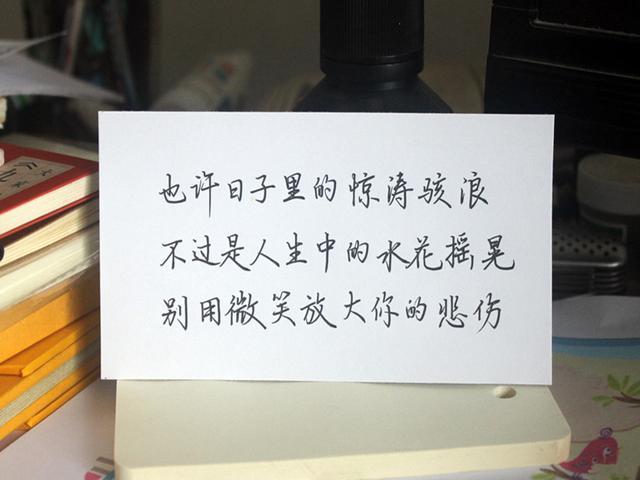 也许日子里的惊涛骇浪
不过是人生中的水花摇晃
别用微笑放大你的悲伤